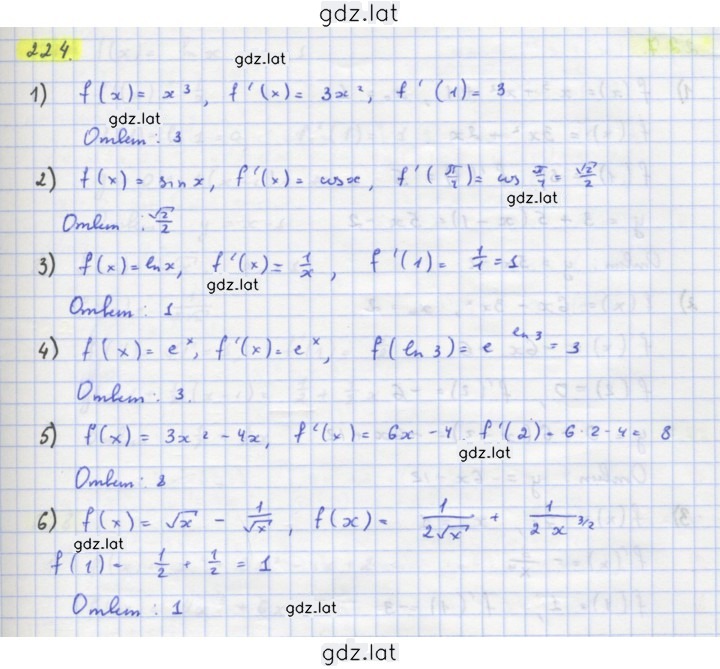 gdz.lat
224.
gdz.lat
1) f(x) = x³, f'(x) = 3x², f'(1) = 3
gdz.lat
Ответ: 3
2) f(x) = sin x, f'(x) = cos x, f'(π/4) = cos π/4 = √2/2
gdz.lat
Ответ: √2/2
3) f(x) = ln x, f'(x) = 1/x, f'(1) = 1/1 = 1
gdz.lat
Ответ: 1
4) f(x) = eˣ, f'(x) = eˣ, f(ln 3) = e^(ln 3) = 3
Ответ: 3.
5) f(x) = 3x² - 4x, f'(x) = 6x - 4. f'(2) = 6·2-4 = 8
gdz.lat
Ответ: 8
6) f(x) = √x - 1/√x, f(x) = 1/(2√x) + 1/(2x^(3/2))
gdz.lat
f(1) = 1/2 + 1/2 = 1
Ответ: 1
gdz.lat
gdz.lat